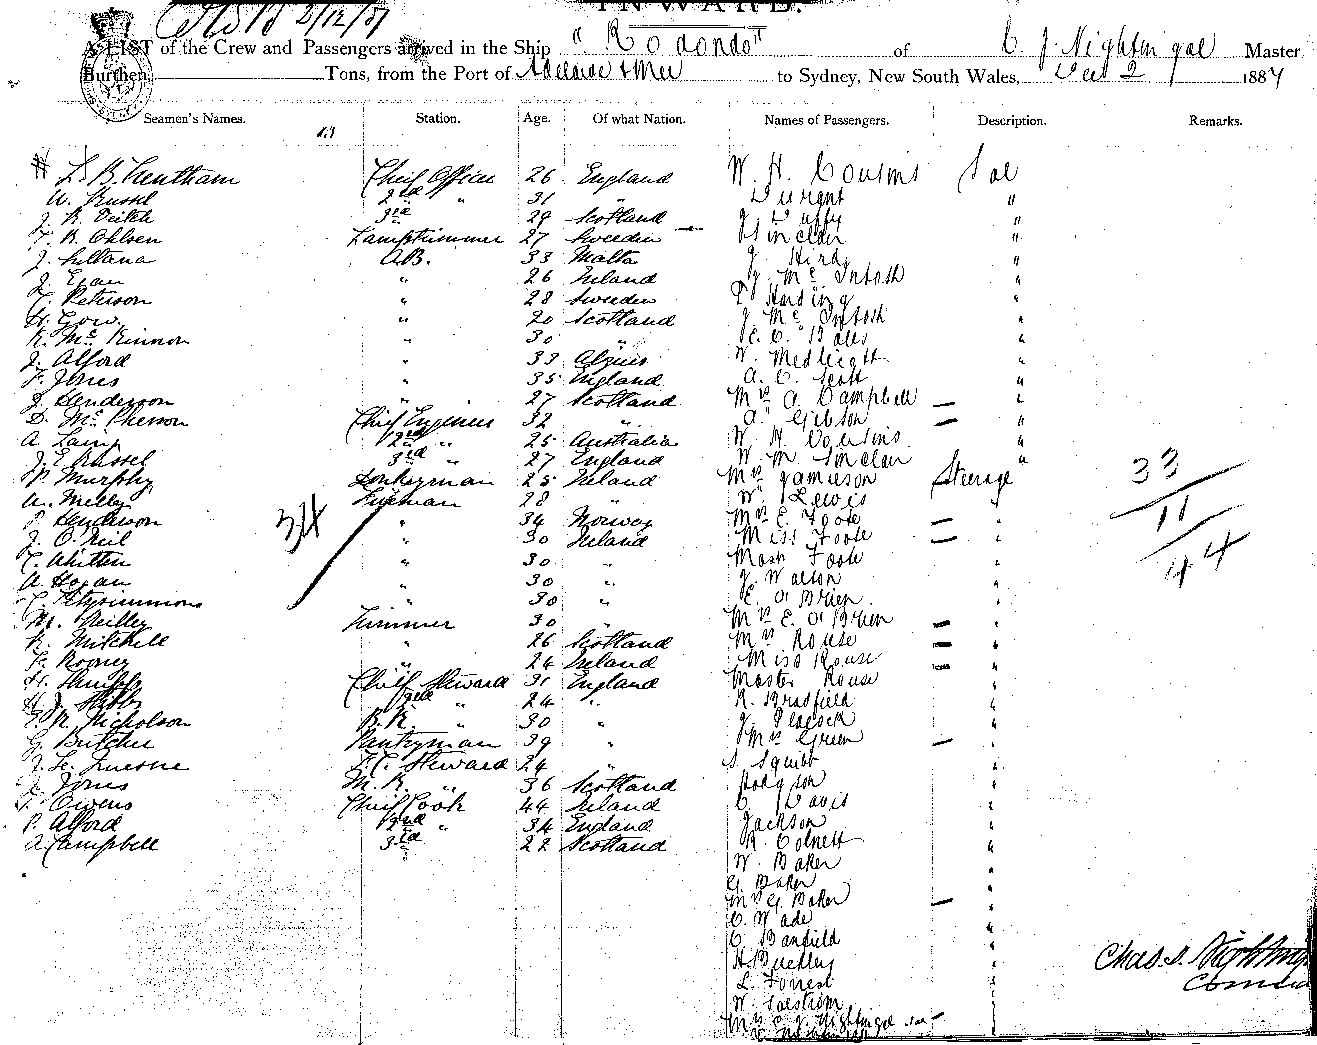 INWARD.
2/12/87
A LIST of the Crew and Passengers arrived in the Ship "Rodondo" of C J Nightingal Master
Burthen, Tons, from the Port of Adelaide & Mel to Sydney, New South Wales, Dec 2 1887
Seamen's Names. Station. Age. Of what Nation. Names of Passengers. Description. Remarks.
Chief Officer 26 England W. H. Cousins Sal
W. Russel 2nd " 31 " Durant "
J. R. 3rd 29 Scotland J Duffy "
F. R. Ohlsen Lamptrimmer 27 Sweeden Sinclair "
J. Sultana A.B. 33 Malta J. Hird "
J. Egan " 26 Ireland J. Mc Intosh "
C. Peterson " 28 Sweeden Harding "
H. Gow " 20 Scotland J Mc Intosh "
R. Mc Kinnon " 30 " E. C. Bates "
J. Alford " 33 Algiers W. Medlicott "
F. Jones " 35 England A. C. Scott "
J. Henderson " 27 Scotland Mrs A Campbell — "
D. Mc Pherson Chief Engineer 32 " A" Gibson — "
A Laing 2nd " 25 Australia W. H. Cousins "
J. E. Russel 3rd " 27 England W. M. Sinclair "
P. Murphy Donkeyman 25 Ireland Mrs Jamieson Steerage 33
Fireman 28 " W. Lewis "
P. Henderson " 34 Norway Mrs E. Foote — " 11
J. O. Neil " 30 Ireland Miss Foote — "
34
C. Whitten " 30 " Mast Foote " 44
A. Hogan " 30 " J Walton "
C. Fitzsimmons " 30 " E. O'Brien "
M. Reilly Trimmer 30 " Mrs E. O'Brien — "
R. Mitchell " 26 Scotland Mrs Rouse — "
F. Rooney " 24 Ireland Miss Rouse — "
Chief Steward 31 England Master Rouse "
2nd " 24 " R. Bradfield "
E. R. Nicholson B.R. " 30 " J. Peacock "
G. Butcher Pantryman 39 " Mrs Green — "
J. Le Quesne F.C. Steward 24 " S Squibb "
J. Jones M.R. " 36 Scotland Hodgson "
P. Owens Chief Cook 44 Ireland C. Davis "
P. Alford 2nd " 34 England Jackson "
A. Campbell 3rd " 22 Scotland R. Colnett "
W. Baker "
G. Baker "
Mrs G. Baker — "
C. Wade "
C. Banfield "
H. Buckley "
L. Forrest "
W. "
Mrs C. J. Nightingal Sal —
Chas. J. Nightingal